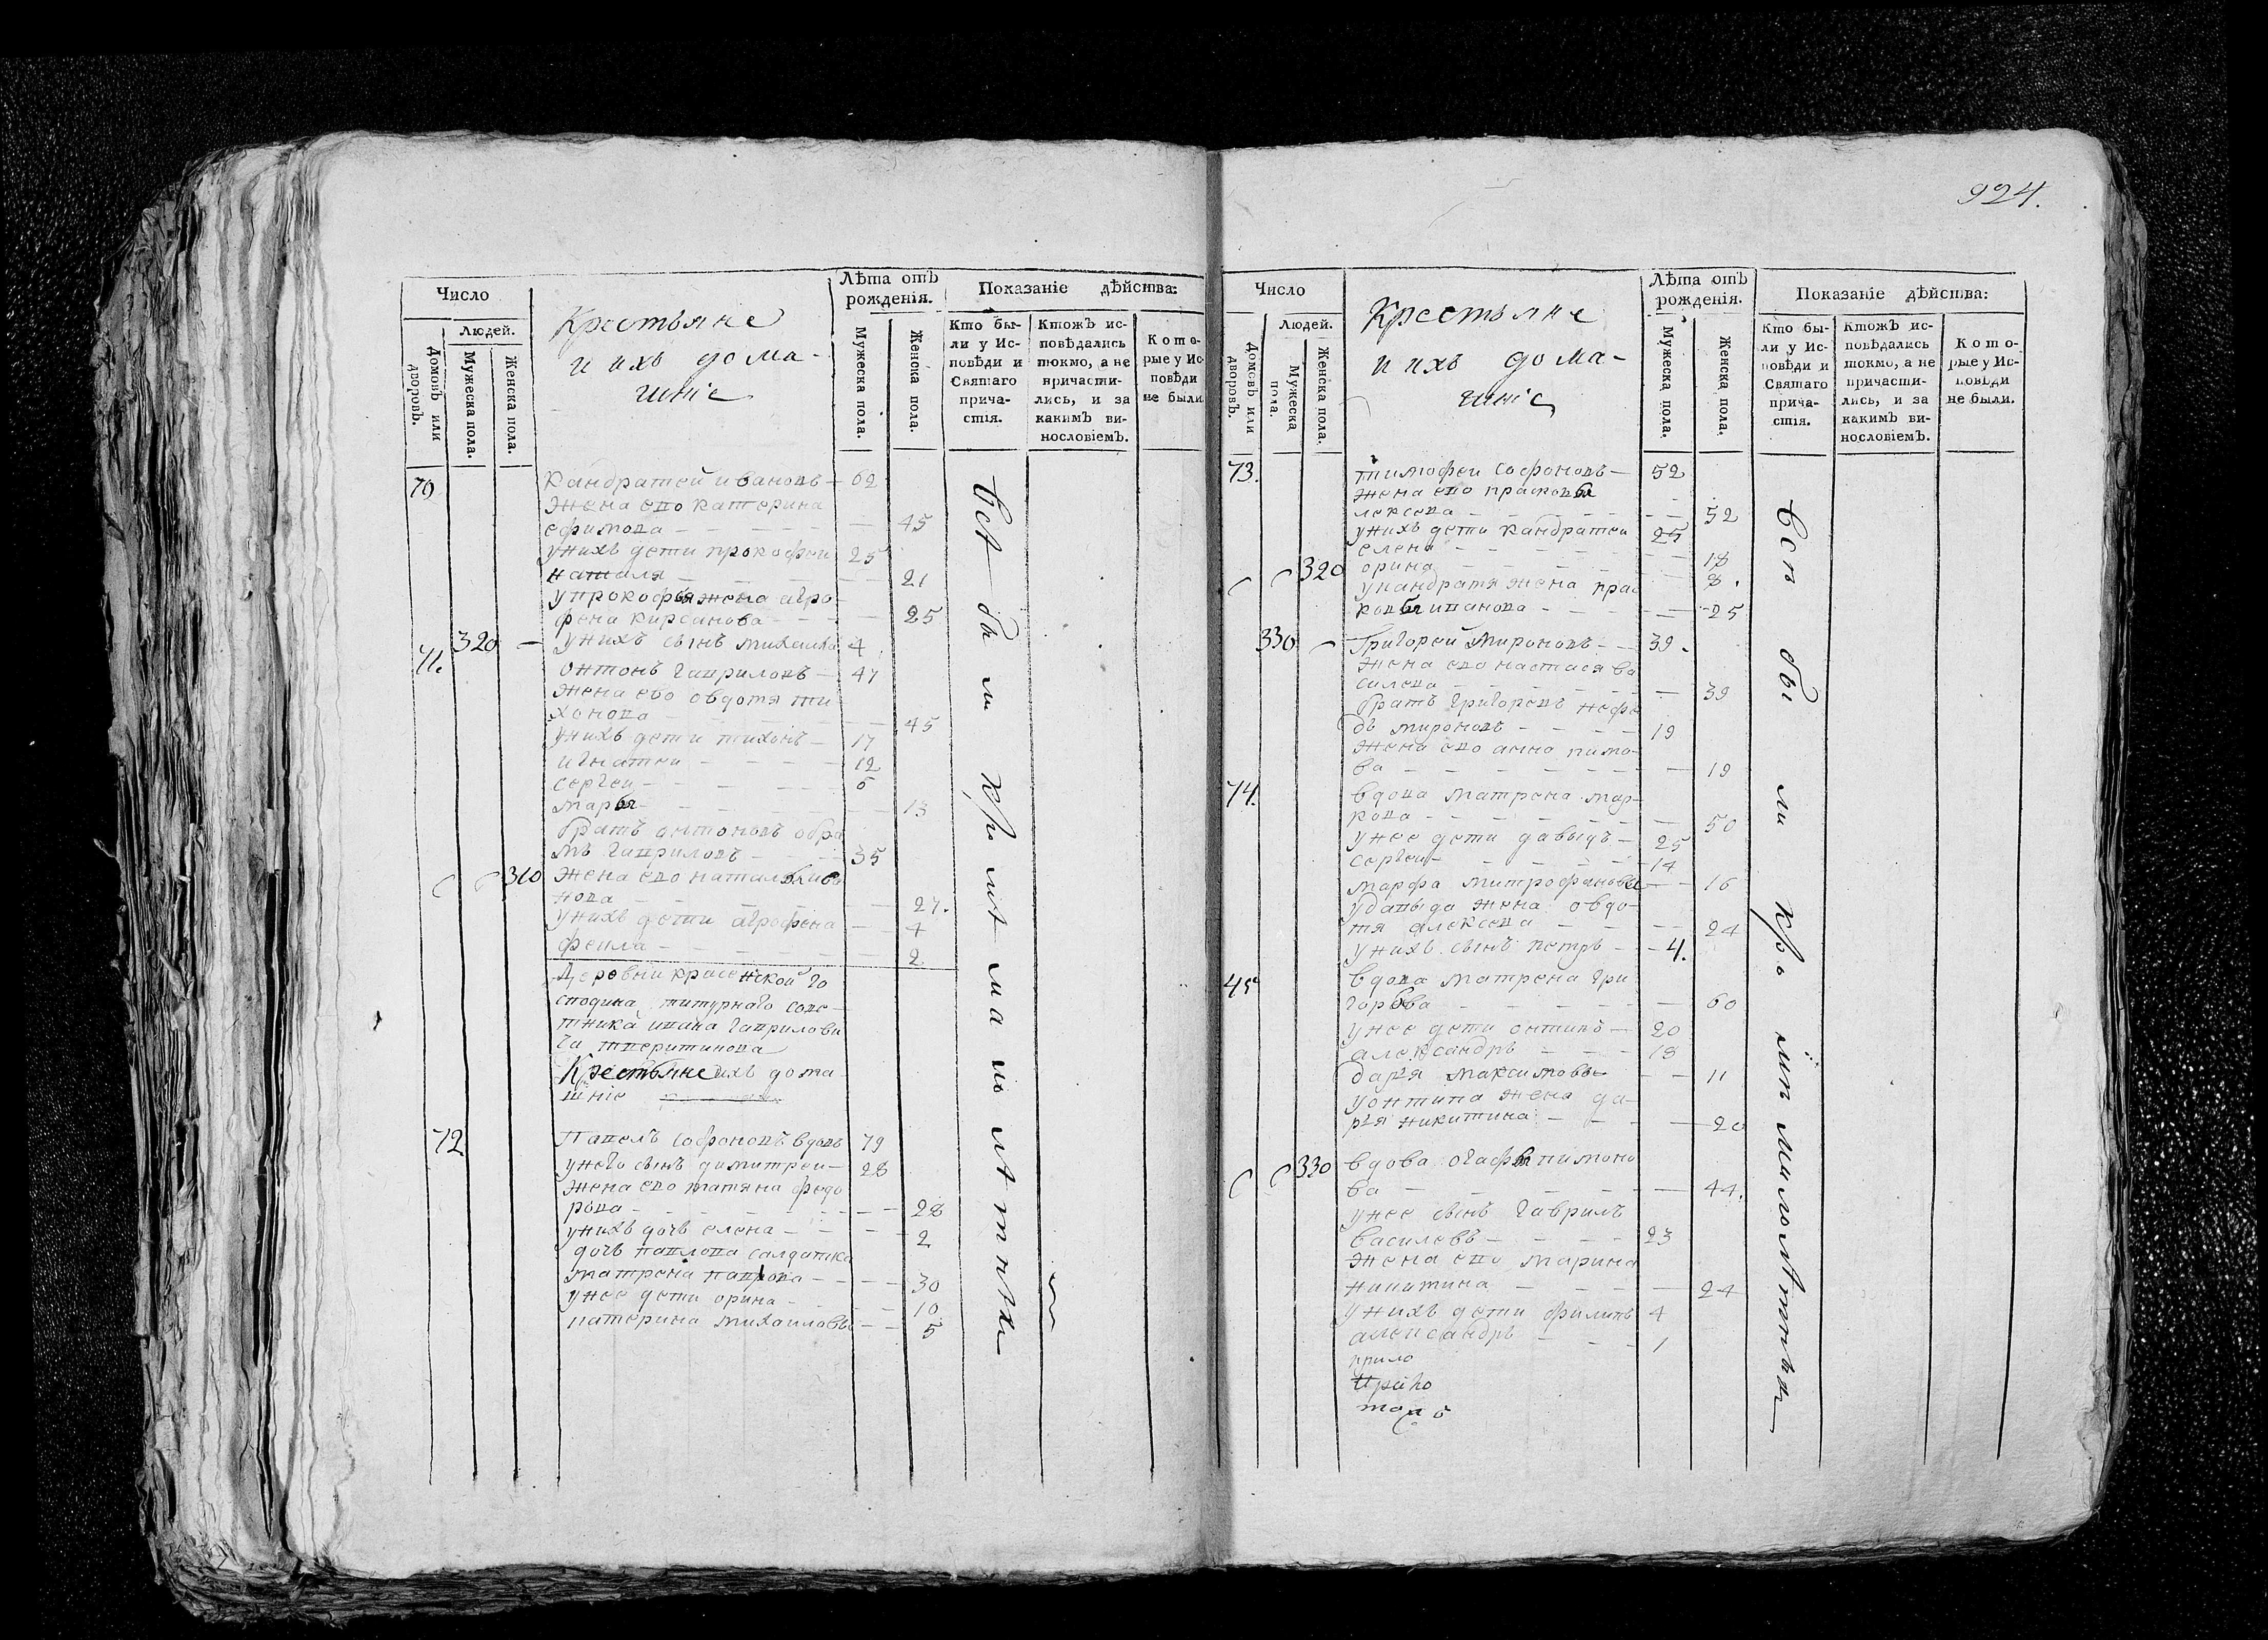 924.
Число
Людей.
Домовъ или дворовъ.
Мужеска пола.
Женска пола.
Крестьяне
и ихъ дома-
шніе
Лѣта отъ
рожденія.
Мужеска пола.
Женска пола.
Показаніе дѣйства:
Кто бы-
ли у Ис-
повѣди и
Святаго
прича-
стія.
Ктожъ ис-
повѣдались
токмо, а не
причасти-
лись, и за
какимъ ви-
нословіемъ.
Кото-
рые у Ис-
повѣди
не были.
70 Кандратей ивановъ — 62
жена ево катерина
ефимова — 45
унихъ дети прокофеи 25
наталя — 21
упрокофья жена агро-
фена кирсанова — 25
320 — унихъ сынъ михаила 4
71. онтонъ гавриловъ — 47
жена ево овдотя ти
хонова — 45
унихъ дети тихонъ — 17
игнатеи — 12
сергеи — 5
марья — 13
братъ антоновъ обра
мъ гавриловъ — 35
310 жена ево наталья ива
нова — 27.
унихъ дети агрофена — 4
феила — 2
деревни красенской го
сподина титулярнаго сове-
тника ивана гаврилови
ча
Крестьяне ихъ дома
шніе
72 Павелъ софоновъ вдовъ 79
унего сынъ димитреи — 28
жена ево татяна федо
рова — 28
унихъ дочь елена — 2
дочь павлова салдатка
матрена павлова — 30
унее дети орина — 10
катерина михаиловы — 5
Всѣ были
Число
Людей.
Домовъ или дворовъ.
Мужеска пола.
Женска пола.
Крестьяне
и ихъ дома-
шніе
Лѣта отъ
рожденія.
Мужеска пола.
Женска пола.
Показаніе дѣйства:
Кто бы-
ли у Ис-
повѣди и
Святаго
прича-
стія.
Ктожъ ис-
повѣдались
токмо, а не
причасти-
лись, и за
какимъ ви-
нословіемъ.
Кото-
рые у Ис-
повѣди
не были.
73. тимофеи софоновъ — 52
жена ево прасковья
лексева — 52
унихъ дети кандратеи 25
елена — 18
320 орина — 8.
укандратя жена прас
ковья иванова — 25
330 — Григореи мироновъ — 39.
жена ево настася ва
силева — 39
братъ григоревъ нефе
дъ мироновъ — 19
жена ево анна пимо-
ва — 19
74. вдова матрена мар-
кова — 50
унее дети давыдъ — 25
сергеи — 14
марфа митрофановы — 16
удавыда жена овдо-
тя алексева — 24
унихъ сынъ петръ — 4.
75 вдова матрена гри
горьева — 60
унее дети онтипъ — 20
александръ — 18
дарья максимовы — 11
уонтипа жена да-
рья никитина — 20
330 вдова огафья пимоно
ва — 44.
унее сынъ гаврилъ
василевъ — 23
жена ево марина
никитина — 24
унихъ дети филипъ 4
александръ — 1
Всѣ были